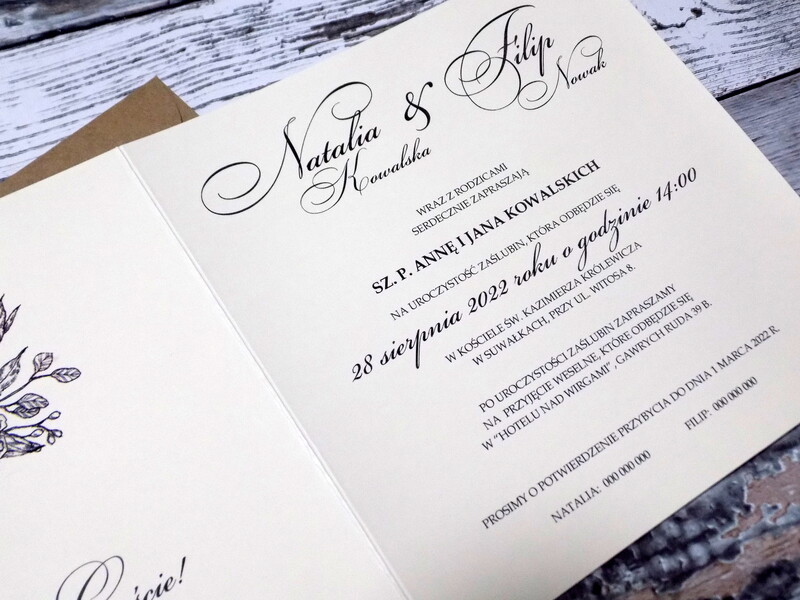 Natalia & Filip
Kowalska Nowak
WRAZ Z RODZICAMI
SERDECZNIE ZAPRASZAJĄ
SZ. P. ANNĘ I JANA KOWALSKICH
NA UROCZYSTOŚĆ ZAŚLUBIN, KTÓRA ODBĘDZIE SIĘ
28 sierpnia 2022 roku o godzinie 14:00
W KOŚCIELE ŚW. KAZIMIERZA KRÓLEWICZA
W SUWAŁKACH, PRZY UL. WITOSA 8.
PO UROCZYSTOŚCI ZAŚLUBIN ZAPRASZAMY
NA PRZYJĘCIE WESELNE, KTÓRE ODBĘDZIE SIĘ
W "HOTELU NAD WIGRAMI", GAWRYCH RUDA 39 B.
PROSIMY O POTWIERDZENIE PRZYBYCIA DO DNIA 1 MARCA 2022 R.
NATALIA: 000 000 000 FILIP: 000 000 000